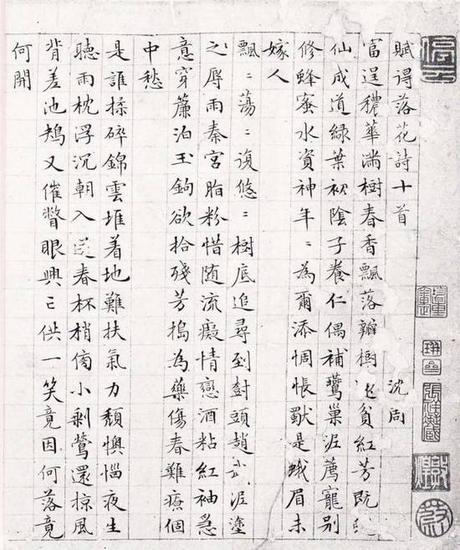 賦得落花詩十首
沈周
富逞穠華滿樹春香飄落瓣樹還貧紅芳既
仙成道綠葉初陰子養仁偶補鶯巢泥薦寵別
修蜂蜜水資神年〻為爾添惆悵是蛾眉未
嫁人
飄〻蕩〻復悠〻樹底追尋到封頭趙武泥塗
之辱雨秦宮脂粉惜隨流癡情戀酒粘紅袖急
意穿簾泊玉鉤欲拾殘芳搗為藥傷春難療個
中愁
是誰揉碎錦雲堆着地難扶氣力頹懊惱夜生
聽雨枕浮沉朝入送春杯梢傍小剩鶯還掠風
背差池鳷又催瞥眼興亡供一笑竟因何落竟
何開